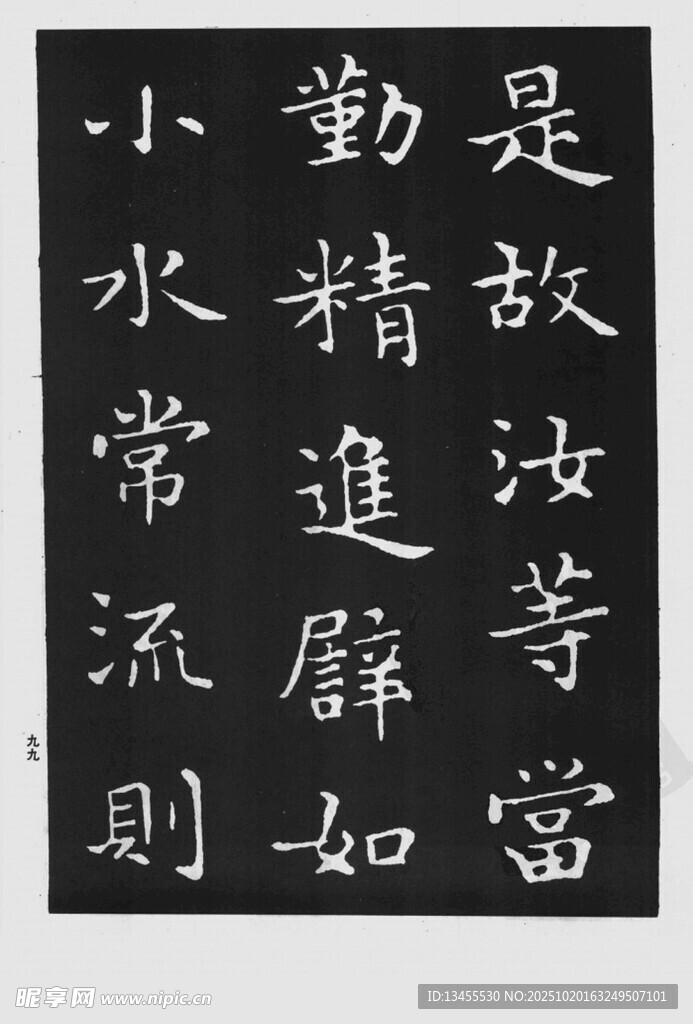 是故汝等當
勤精進譬如
小水常流則
九九
昵享网 www.nipic.cn
ID:13455530 NO:20251020163249507101